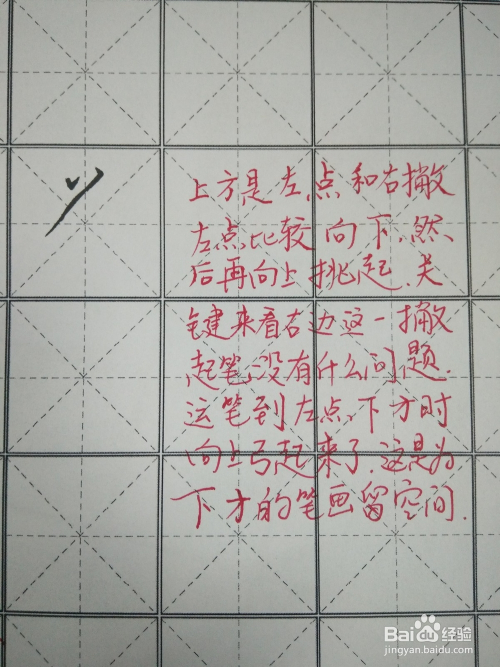 上方是左点和右撇
左点比较向下，然
后再向上挑起．关
键来看右边这一撇
起笔没有什么问题．
运笔到左点下方时
向上弓起来了．这是为
下方的笔画留空间．
Baidu 经验
jingyan.baidu.com